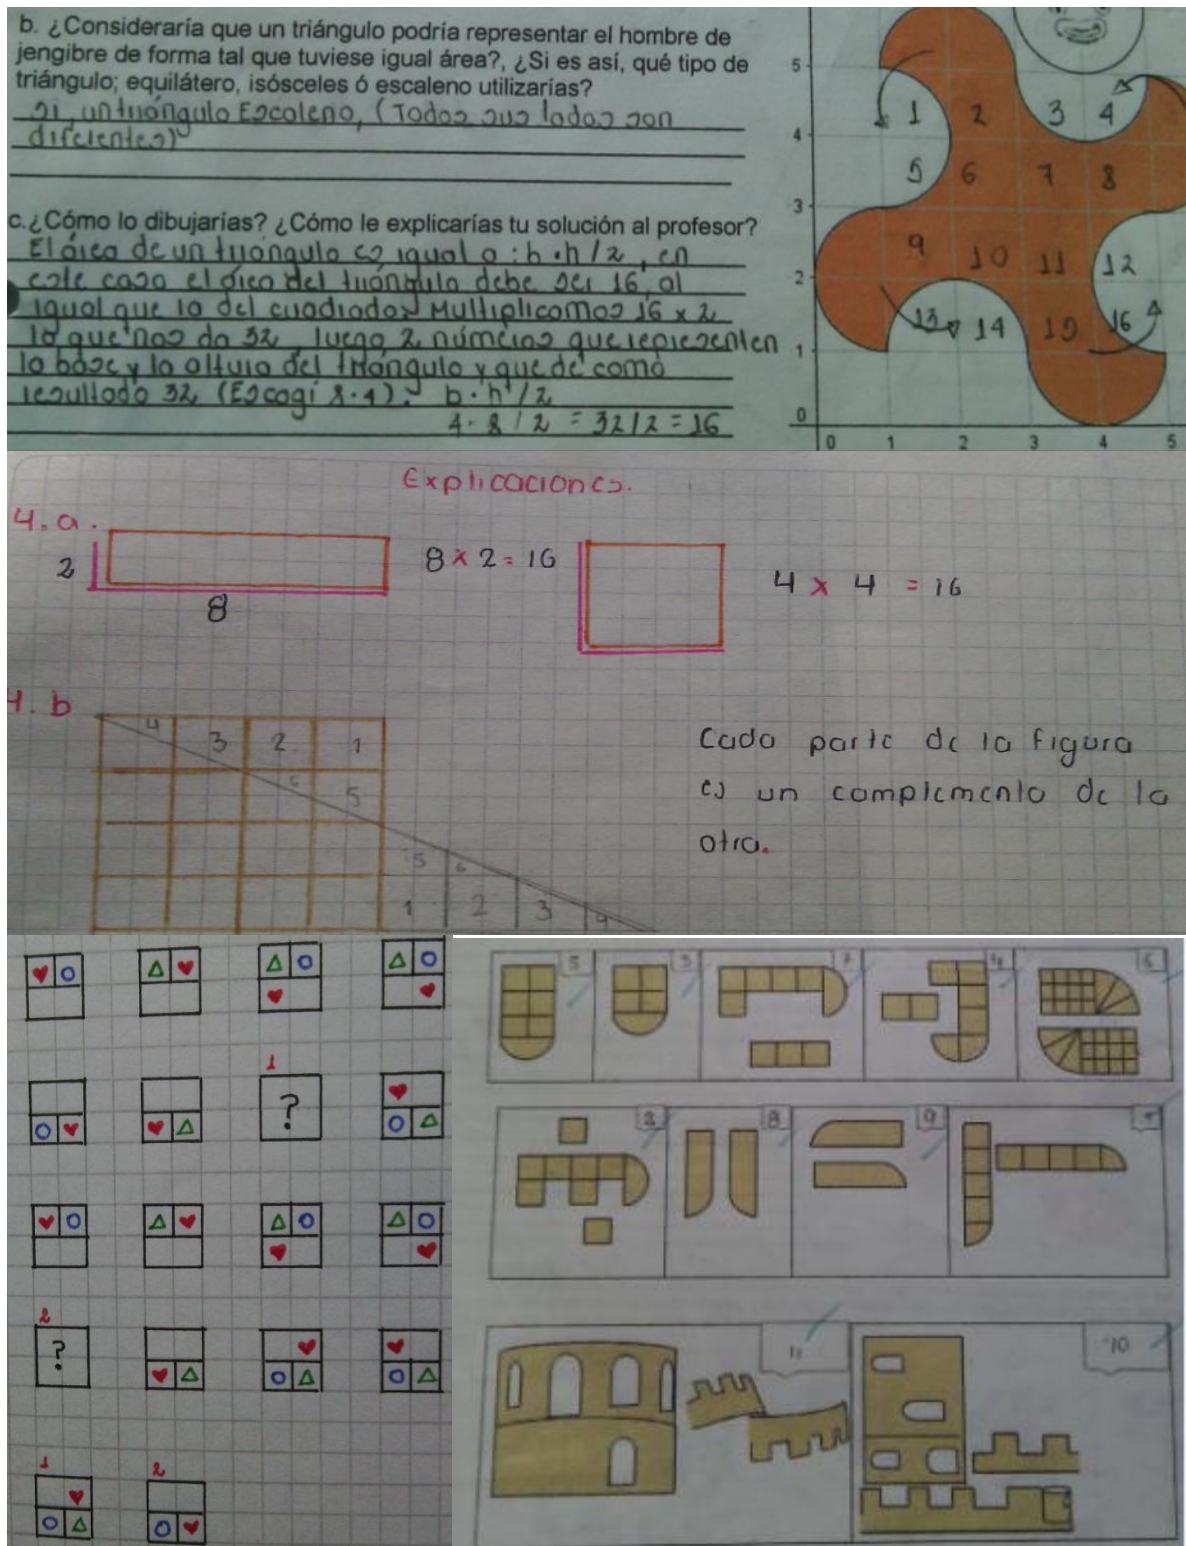 b. ¿Consideraría que un triángulo podría representar el hombre de
jengibre de forma tal que tuviese igual área?, ¿Si es así, qué tipo de
triángulo; equilátero, isósceles ó escaleno utilizarías?
si, un triángulo Escaleno, (Todos sus lados son
diferentes)
c.¿Cómo lo dibujarías? ¿Cómo le explicarías tu solución al profesor?
El área de un triángulo es igual a : b • h / 2, en
este caso el área del triángulo debe ser 16, al
igual que la del cuadrado. Multiplicamos 16 x 2
lo que nos da 32, luego 2 números que representen
la base y la altura del triángulo y que de como
resultado 32 (Escogí 8 • 4). b • h / 2
4 • 8 / 2 = 32 / 2 = 16
5
4
3
2
1
0
0 1 2 3 4 5
1 2 3 4
5 6 7 8
9 10 11 12
13 14 15 16
Explicaciones.
4. a.
2
8
8 x 2 = 16
4 x 4 = 16
4. b
4 3 2 1
6 5
5 6
1 2 3 4
Cada parte de la figura
es un complemento de la
otra.
1
?
2
?
1 2
5 3 7 4 6
2 8 9 1
11 10